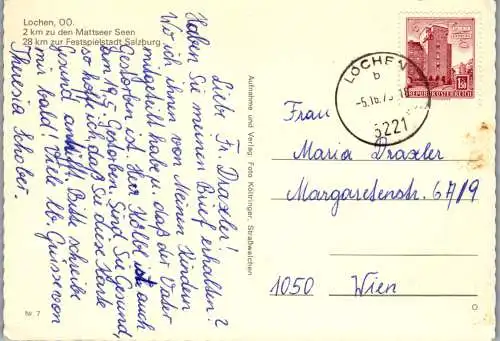 Lochen, OÖ.
2 km zu den Mattseer Seen
28 km zur Festspielstadt Salzburg
Liebe Fr. Draxler!
Haben Sie meinen Brief erhalten?
Wo ich Ihnen von Meinen Kindern
mitgeteilt habe u. daß der Vater
Gestorben ist. Herr Kölbl ist auch
am 19.5 Gestorben. Sind Sie Gesund,
so hoffe ich daß Sie diese Karte
Gesund antrifft. Bitte schreibe
mir bald! Viele lb. Grüsse von
Theresia Schober.
tw. 7
Aufnahme und Verlag: Foto Költringer, Straßwalchen
LOCHEN
b
5221
1.50
REPUBLIK ÖSTERREICH
Frau
Maria Draxler
Margaretenstr. 67/9
1050 Wien